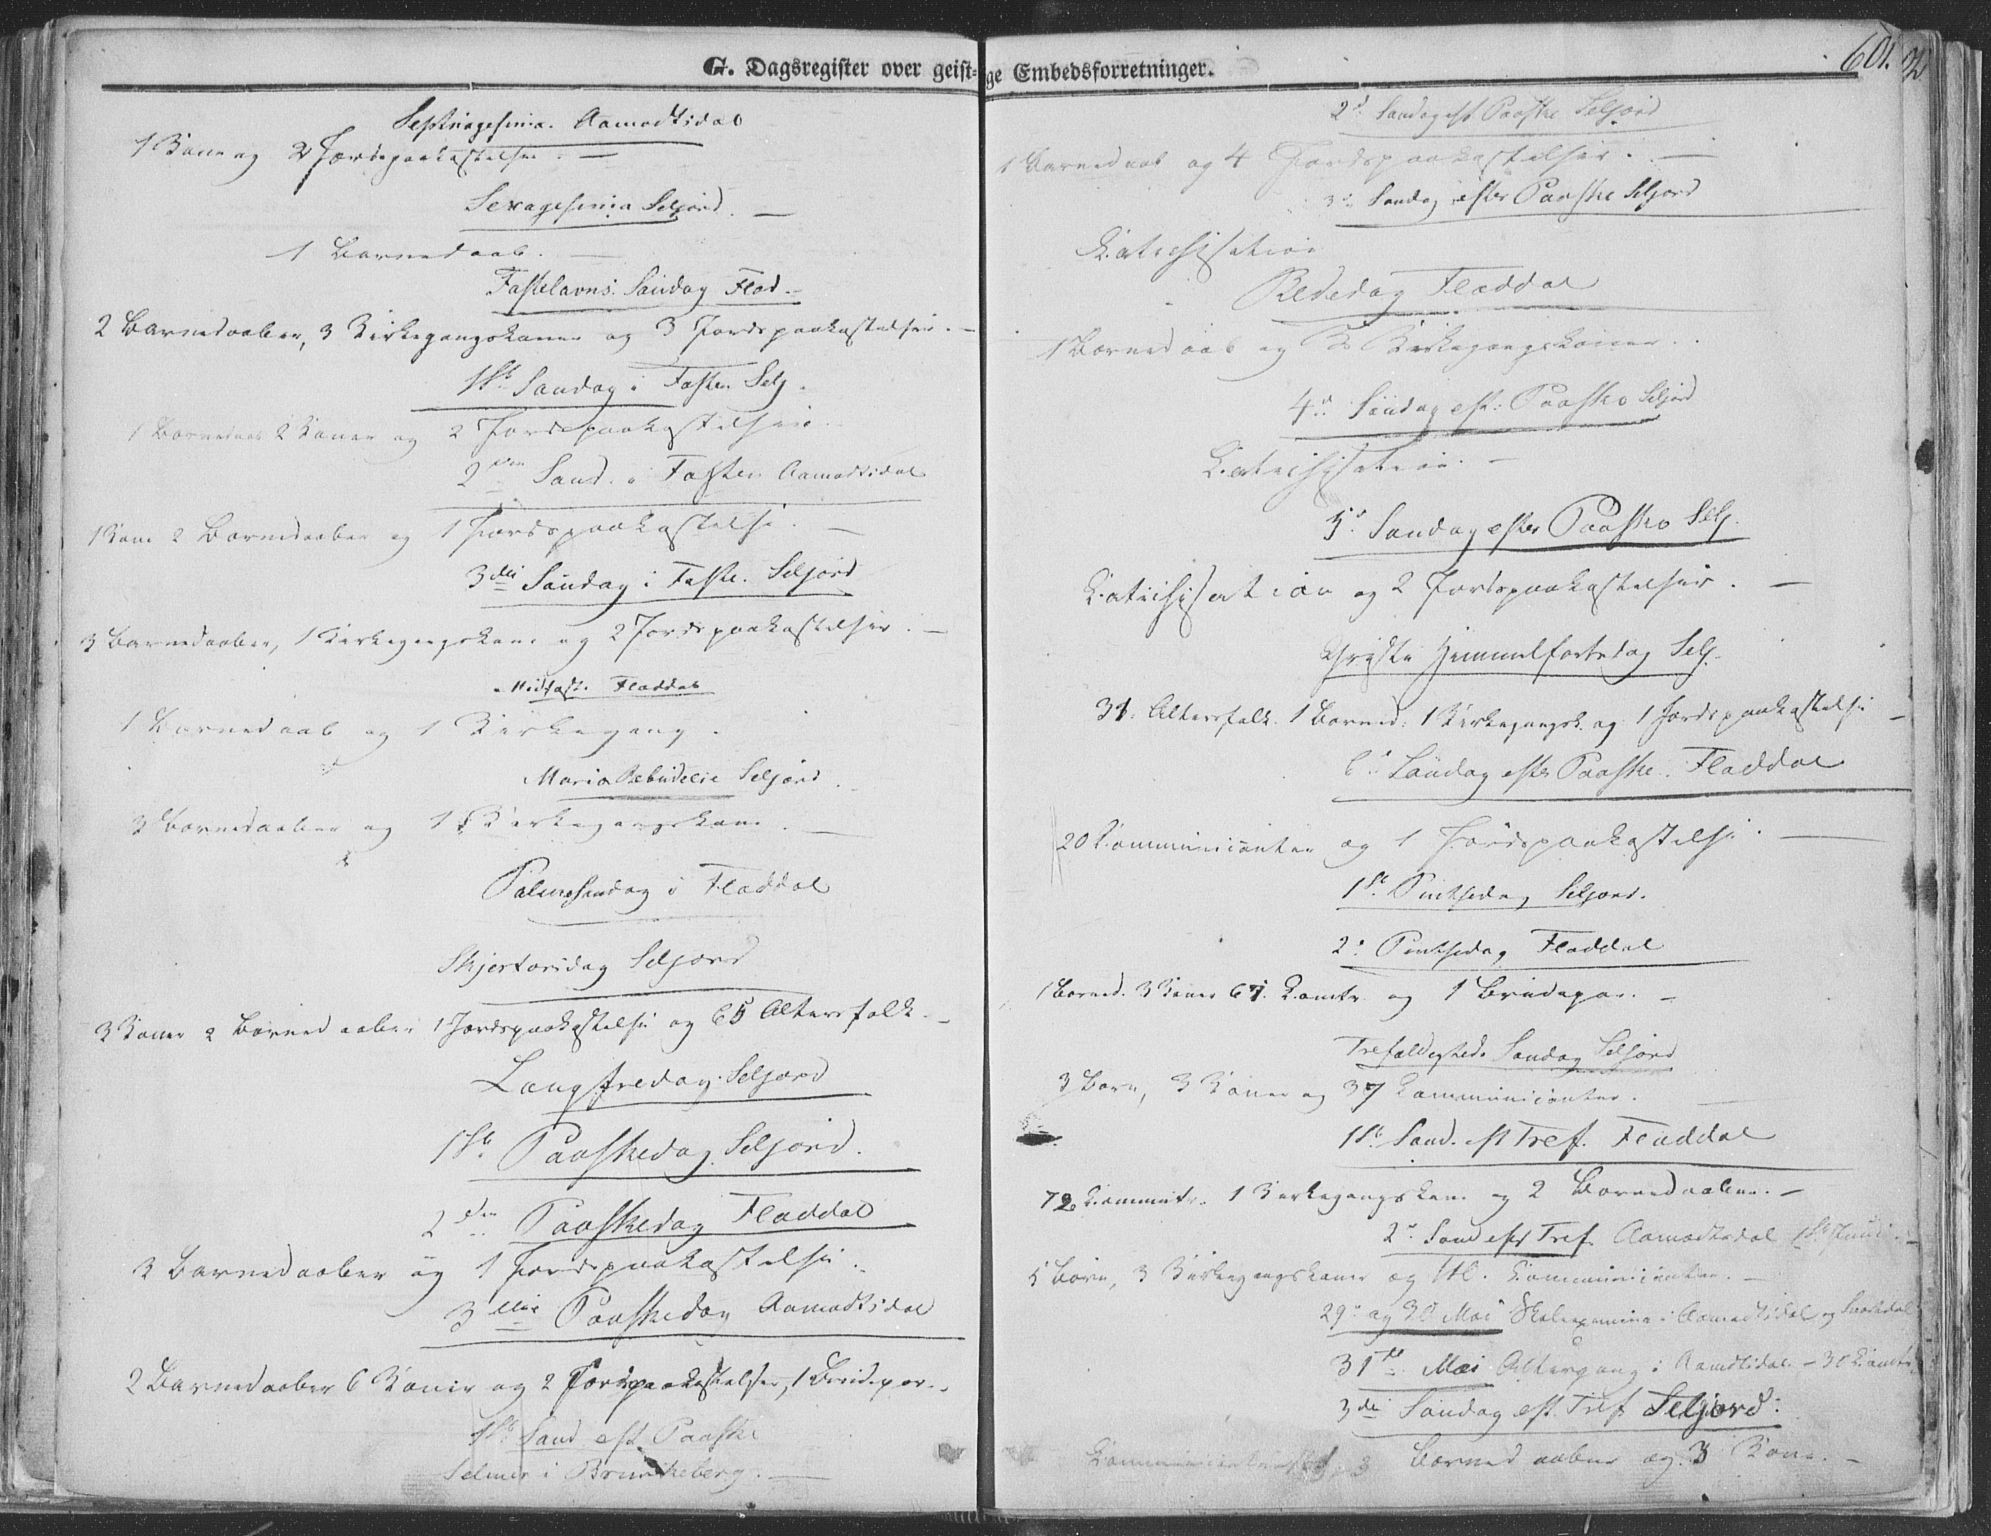 G. Dagsregister over geist-
Septuagesima. Aamodtsdal
1 Kone og 2 Jordspaakastelser. —
Sexagesima Seljord. —
1 Barnedaab. —
Fastelavns Søndag Flad. —
2 Barnedaaber, 3 Kirkegangskoner og 3 Jordspaakastelser. —
1ste Søndag i Fasten Selj.
1 Barnedaab 2 Koner og 2 Jordspaakastelser.
2den Sønd. i Fasten Aamodtsdal
1 Kone 2 Barnedaaber og 1 Jordspaakastelse. —
3die Søndag i Faste. Seljord
3 Barnedaaber, 1 Kirkegangskone og 2 Jordspaakastelser. —
Midfaste Fladdal
1 Barnedaab og 1 Kirkegang.
Maria Bebudelse Seljord.
3 Barnedaaber og 1 Kirkegangskone. —
Palmesøndag i Fladdal
Skjertorsdag Seljord
3 Koner 2 Barnedaaber 1 Jordspaakastelse og 65 Altersfolk. —
Langfredag. Seljord
1ste Paaskedag. Seljord.
2den Paaskedag Fladdal
3 Barnedaaber og 1 Jordspaakastelse.
3die Paaskedag Aamodtsdal
2 Barnedaaber 6 Koner og 2 Jordspaakastelser, 1 Brudepar.
1ste Sønd. eft. Paaske
i Brunkeberg. —
ge Embedsforretninger.
601.
2d Søndag eft Paaske Seljord
1 Barnedaab og 4 Jordspaakastelser. —
3d Søndag efter Paaske Seljord
Catechisation
Bededag Fladdal
1 Barnedaab og 2 Kirkegangskoner.
4d Søndag eft. Paaske Seljord
Catechisation. —
5d Søndag efter Paaske Selj.
Catechisation og 2 Jordspaakastelser. —
Christi Himmelfartsdag Selj.
31. Altersfolk. 1 Barned: 1 Kirkegangsk. og 1 Jordspaakastelse —
6d Søndag efter Paaske. Fladdal
20 Communicanter og 1 Jordspaakastelse. —
1ste Pintsedag Seljord.
2d Pintsedag Fladdal
1 Barned. 3 Koner 67. Comtr. og 1 Brudepar. —
Trefoldigheds Søndag Seljord
3 Børn, 3 Koner og 37 Communicanter.
1ste Sønd. eft Tref. Fladdal
72 Commtr. 1 Kirkegangskone og 2 Barnedaaber. —
2d Sønd efter Tref. Aamodtsdal
5 Børn, 3 Kirkegangskoner og Communicanter. —
29d og 30 Mai Skoleexamina i Aamodtsdal og
31te Mai Altergang i Aamdtsdal — 30 Comtr.
3die Søndag eft. Tref Seljord.
Communicanter 3 Barnedaaber og 3 Kone. —